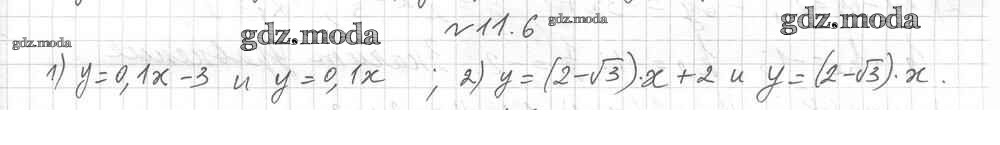 № 11.6 gdz.moda gdz.moda
gdz.moda gdz.moda
1) y = 0,1x - 3 и y = 0,1x ; 2) y = (2-√3)·x + 2 и y = (2-√3)·x .